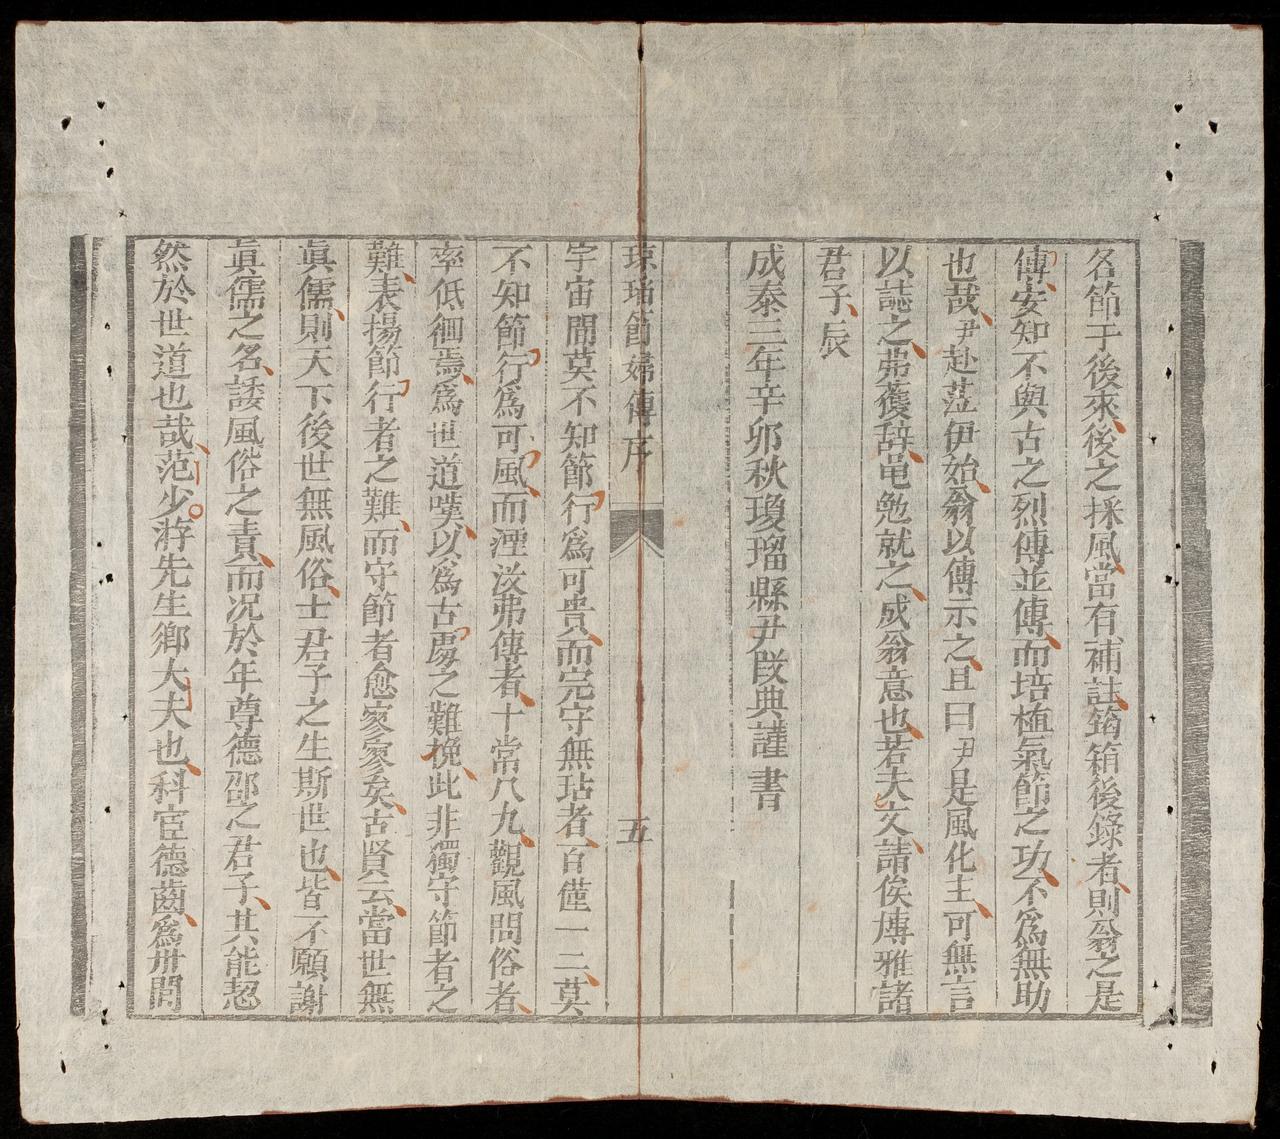 名節于後來後之採風當有補註筠箱後錄者則翁之是
傳安知不與古之烈傳並傳而培植氣節之功不爲無助
也哉尹赴蒞伊始翁以傳示之且曰尹是風化主可無言
以誌之弗獲辞黽勉就之成翁意也若夫文請俟博雅諸
君子辰
成泰三年辛卯秋瓊瑠縣尹段典謹書
琼瑠節婦傳序
五
宇宙間莫不知節行爲可貴而完守無玷者百僅一二莫
不知節行爲可風而湮沒弗傳者十常八九觀風問俗者
率低徊焉爲世道嘆以爲古處之難挽此非獨守節者之
難表揚節行者之難而守節者愈寥寥矣古賢云當世無
眞儒則天下後世無風俗士君子之生斯世也皆不願謝
眞儒之名諉風俗之責而况於年尊德卲之君子其能恝
然於世道也哉范少游先生鄉大夫也科宦德齒爲卅間